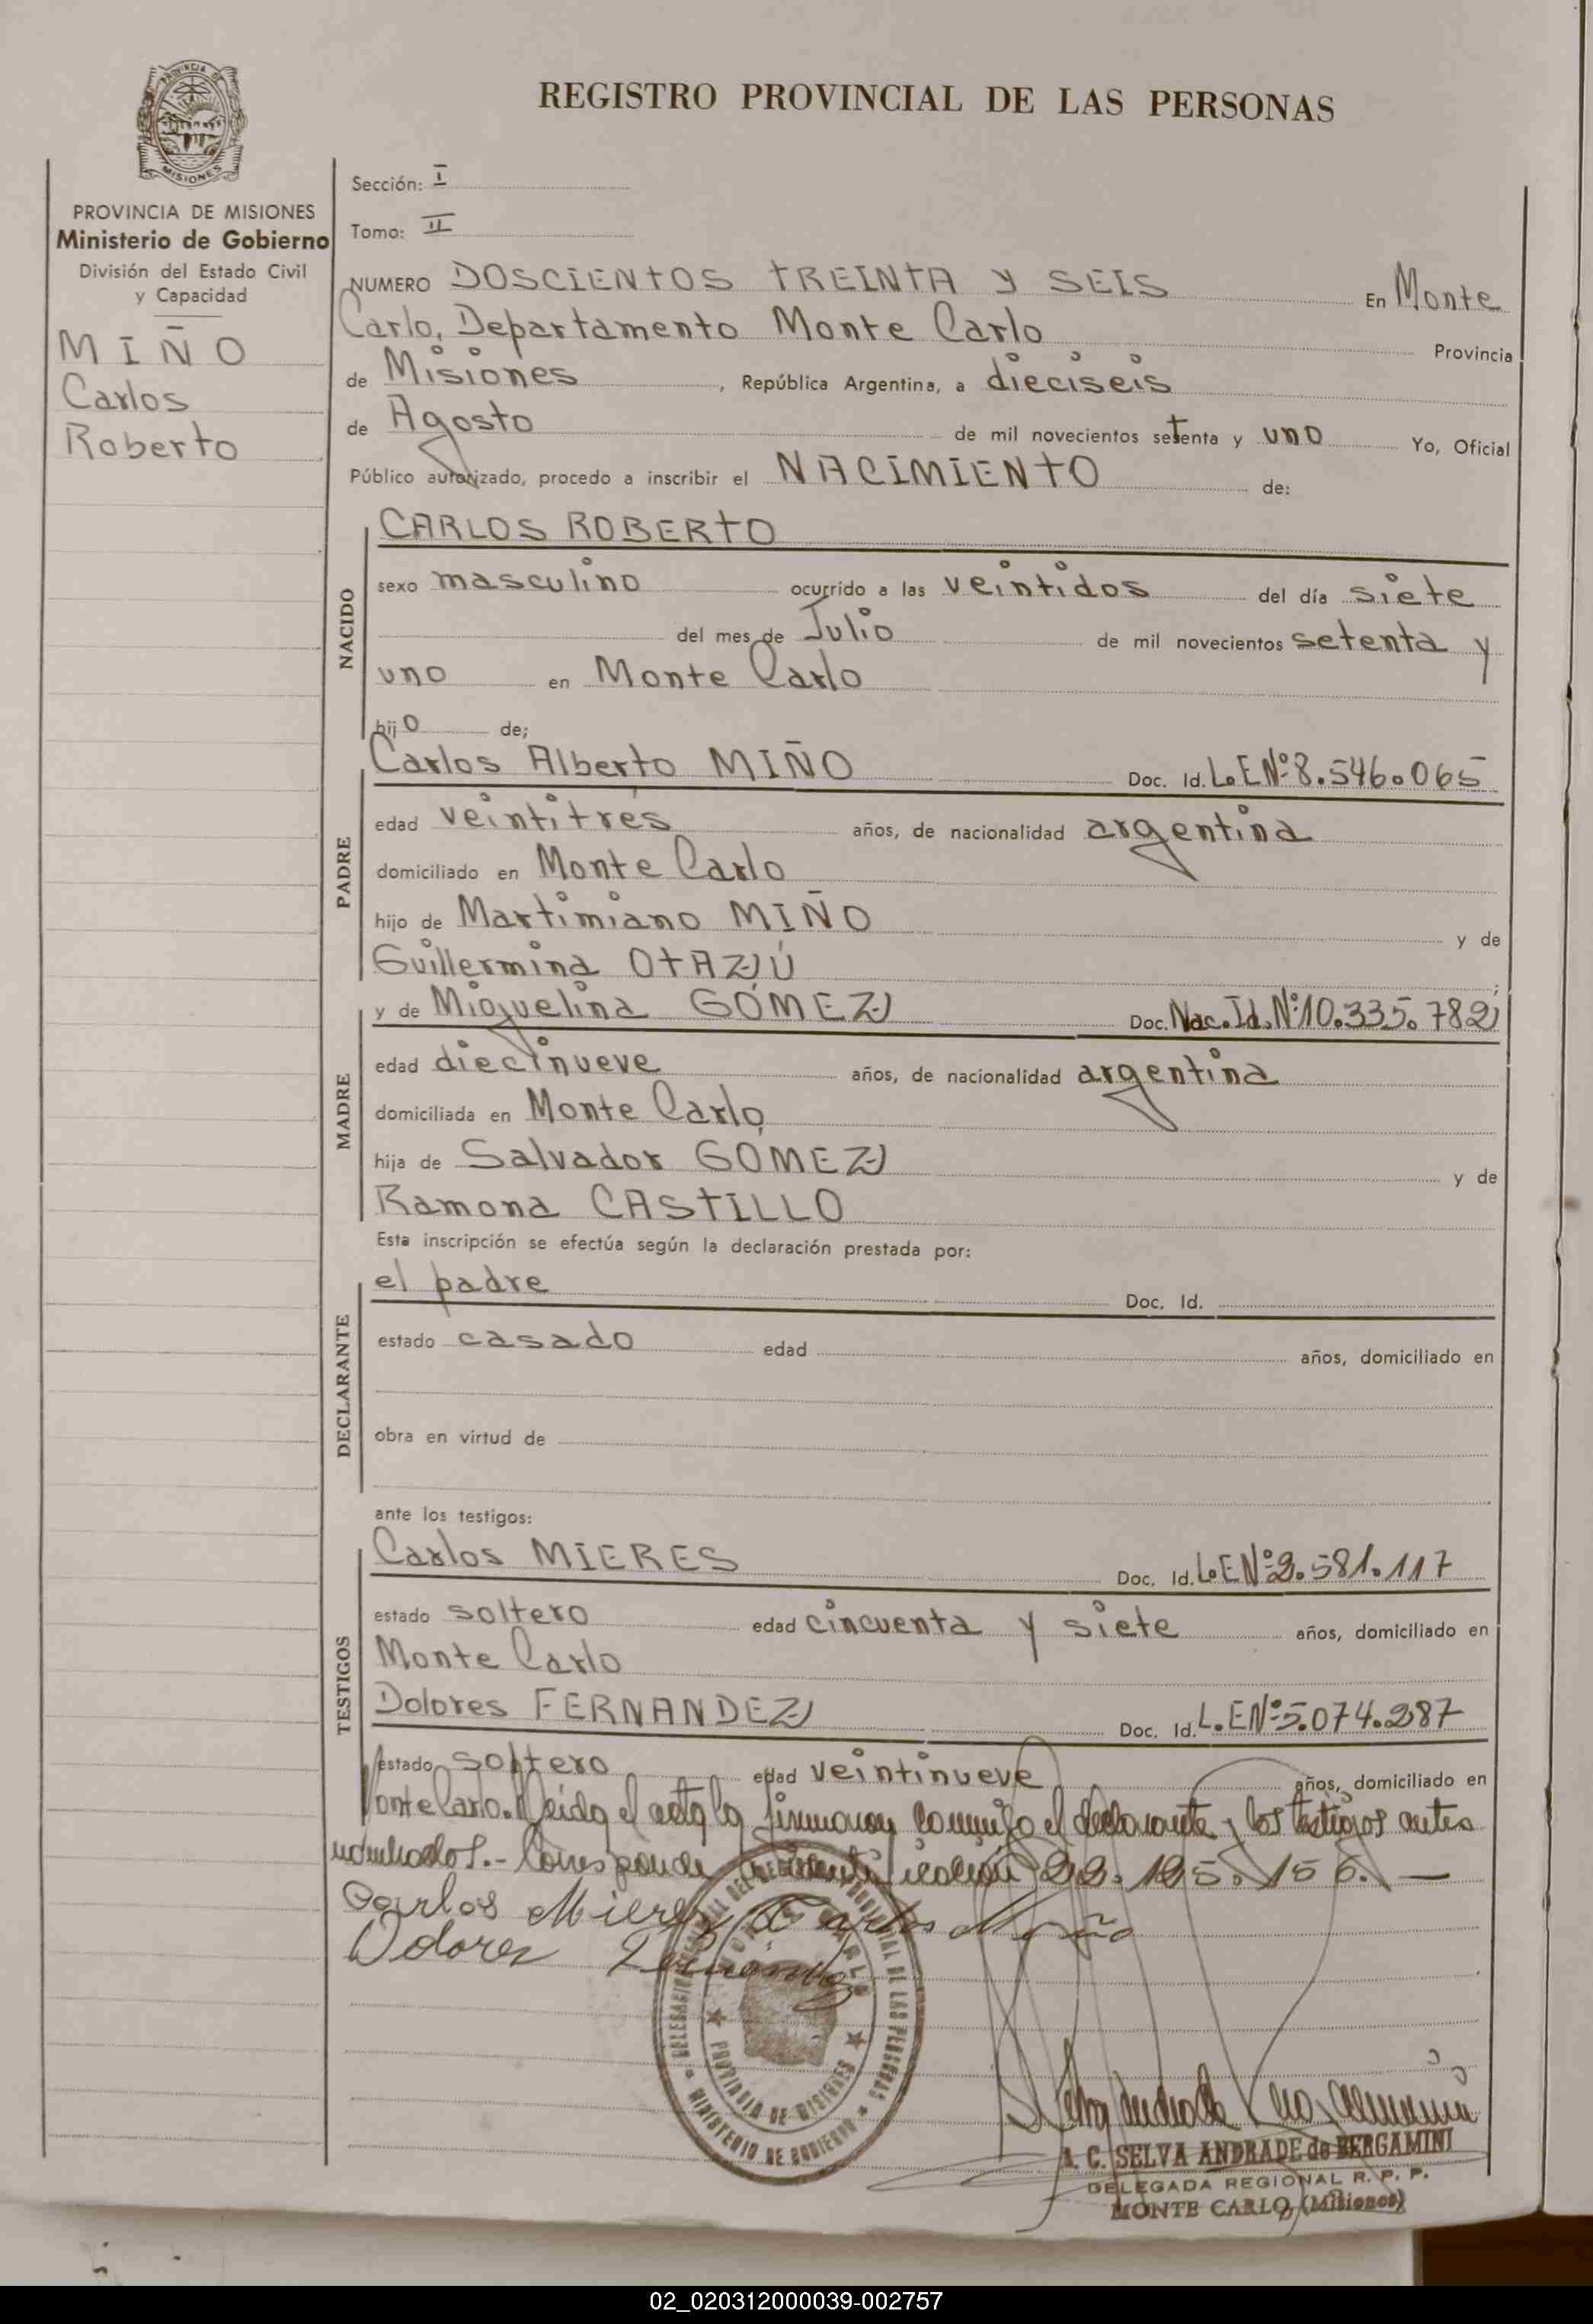 REGISTRO PROVINCIAL DE LAS PERSONAS
PROVINCIA DE MISIONES
Ministerio de Gobierno
División del Estado Civil
y Capacidad
MIÑO
Carlos
Roberto
Sección: I
Tomo: II
NUMERO DOSCIENTOS TREINTA y SEIS En Monte
Carlo, Departamento Monte Carlo Provincia
de Misiones, República Argentina, a dieciseis
de Agosto de mil novecientos setenta y uno Yo, Oficial
Público autorizado, procedo a inscribir el NACIMIENTO de:
NACIDO
CARLOS ROBERTO
sexo masculino ocurrido a las veintidos del día siete
del mes de Julio de mil novecientos setenta y
uno en Monte Carlo
hijo de;
PADRE
Carlos Alberto MIÑO Doc. Id. L.E Nº 8.546.065
edad veintitrés años, de nacionalidad argentina
domiciliado en Monte Carlo
hijo de Martimiano MIÑO y de
Guillermina OTAZÚ;
MADRE
y de Miquelina GÓMEZ Doc. Nac. Id. Nº 10.335.782
edad diecinueve años, de nacionalidad argentina
domiciliada en Monte Carlo
hija de Salvador GÓMEZ y de
Ramona CASTILLO
Esta inscripción se efectúa según la declaración prestada por:
DECLARANTE
el padre Doc. Id.
estado casado edad años, domiciliado en
obra en virtud de
ante los testigos:
TESTIGOS
Carlos MIERES Doc. Id. L.E Nº 2.581.117
estado soltero edad cincuenta y siete años, domiciliado en
Monte Carlo
Dolores FERNANDEZ Doc. Id. L.E Nº 5.074.287
estado soltero edad veintinueve años, domiciliado en
Monte Carlo. Leida el acta la firmaron conmigo el declarante y los testigos antes
nombrados.- Corresponde identificación 22.125.156.-
Carlos Mieres Carlos Miño
Dolores Fernández
DELEGACION REGIONAL DEL REGISTRO PROVINCIAL DE LAS PERSONAS
MONTE CARLO
PROVINCIA DE MISIONES
MINISTERIO DE GOBIERNO
A. C. SELVA ANDRADE de BERGAMINI
DELEGADA REGIONAL R. P. P.
MONTE CARLO (Misiones)
02_020312000039-002757